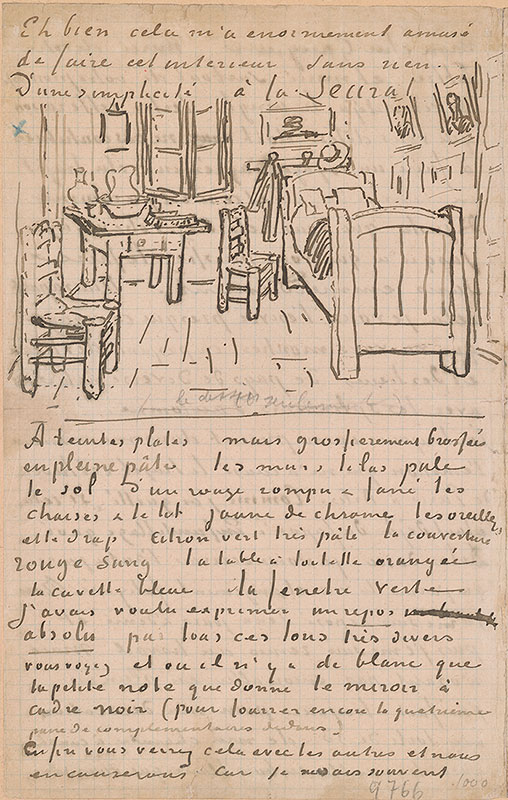 Eh bien cela m'a enormement amusé
de faire cet interieur sans rien.
D'une simplicité à la Seurat
le dessus seulement
A teintes plates mais grossierement brossées
en pleine pâte les murs lilas pale
le sol d'un rouge rompu & fané les
chaises & le lit jaune de chrome les oreillers
et le drap citron vert très pâle la couverture
rouge sang la table à toilette orangée
la cuvette bleue la fenetre verte
J'avais voulu exprimer un repos
absolu par tous ces tons très divers
vous voyez et ou il n'y a de blanc que
la petite note que donne le miroir à
cadre noir (pour fourrer encore la quatrième
paire de complementaires dedans)
Enfin vous verrez cela avec les autres et nous
en causerons car je ne sais souvent
9766 1000